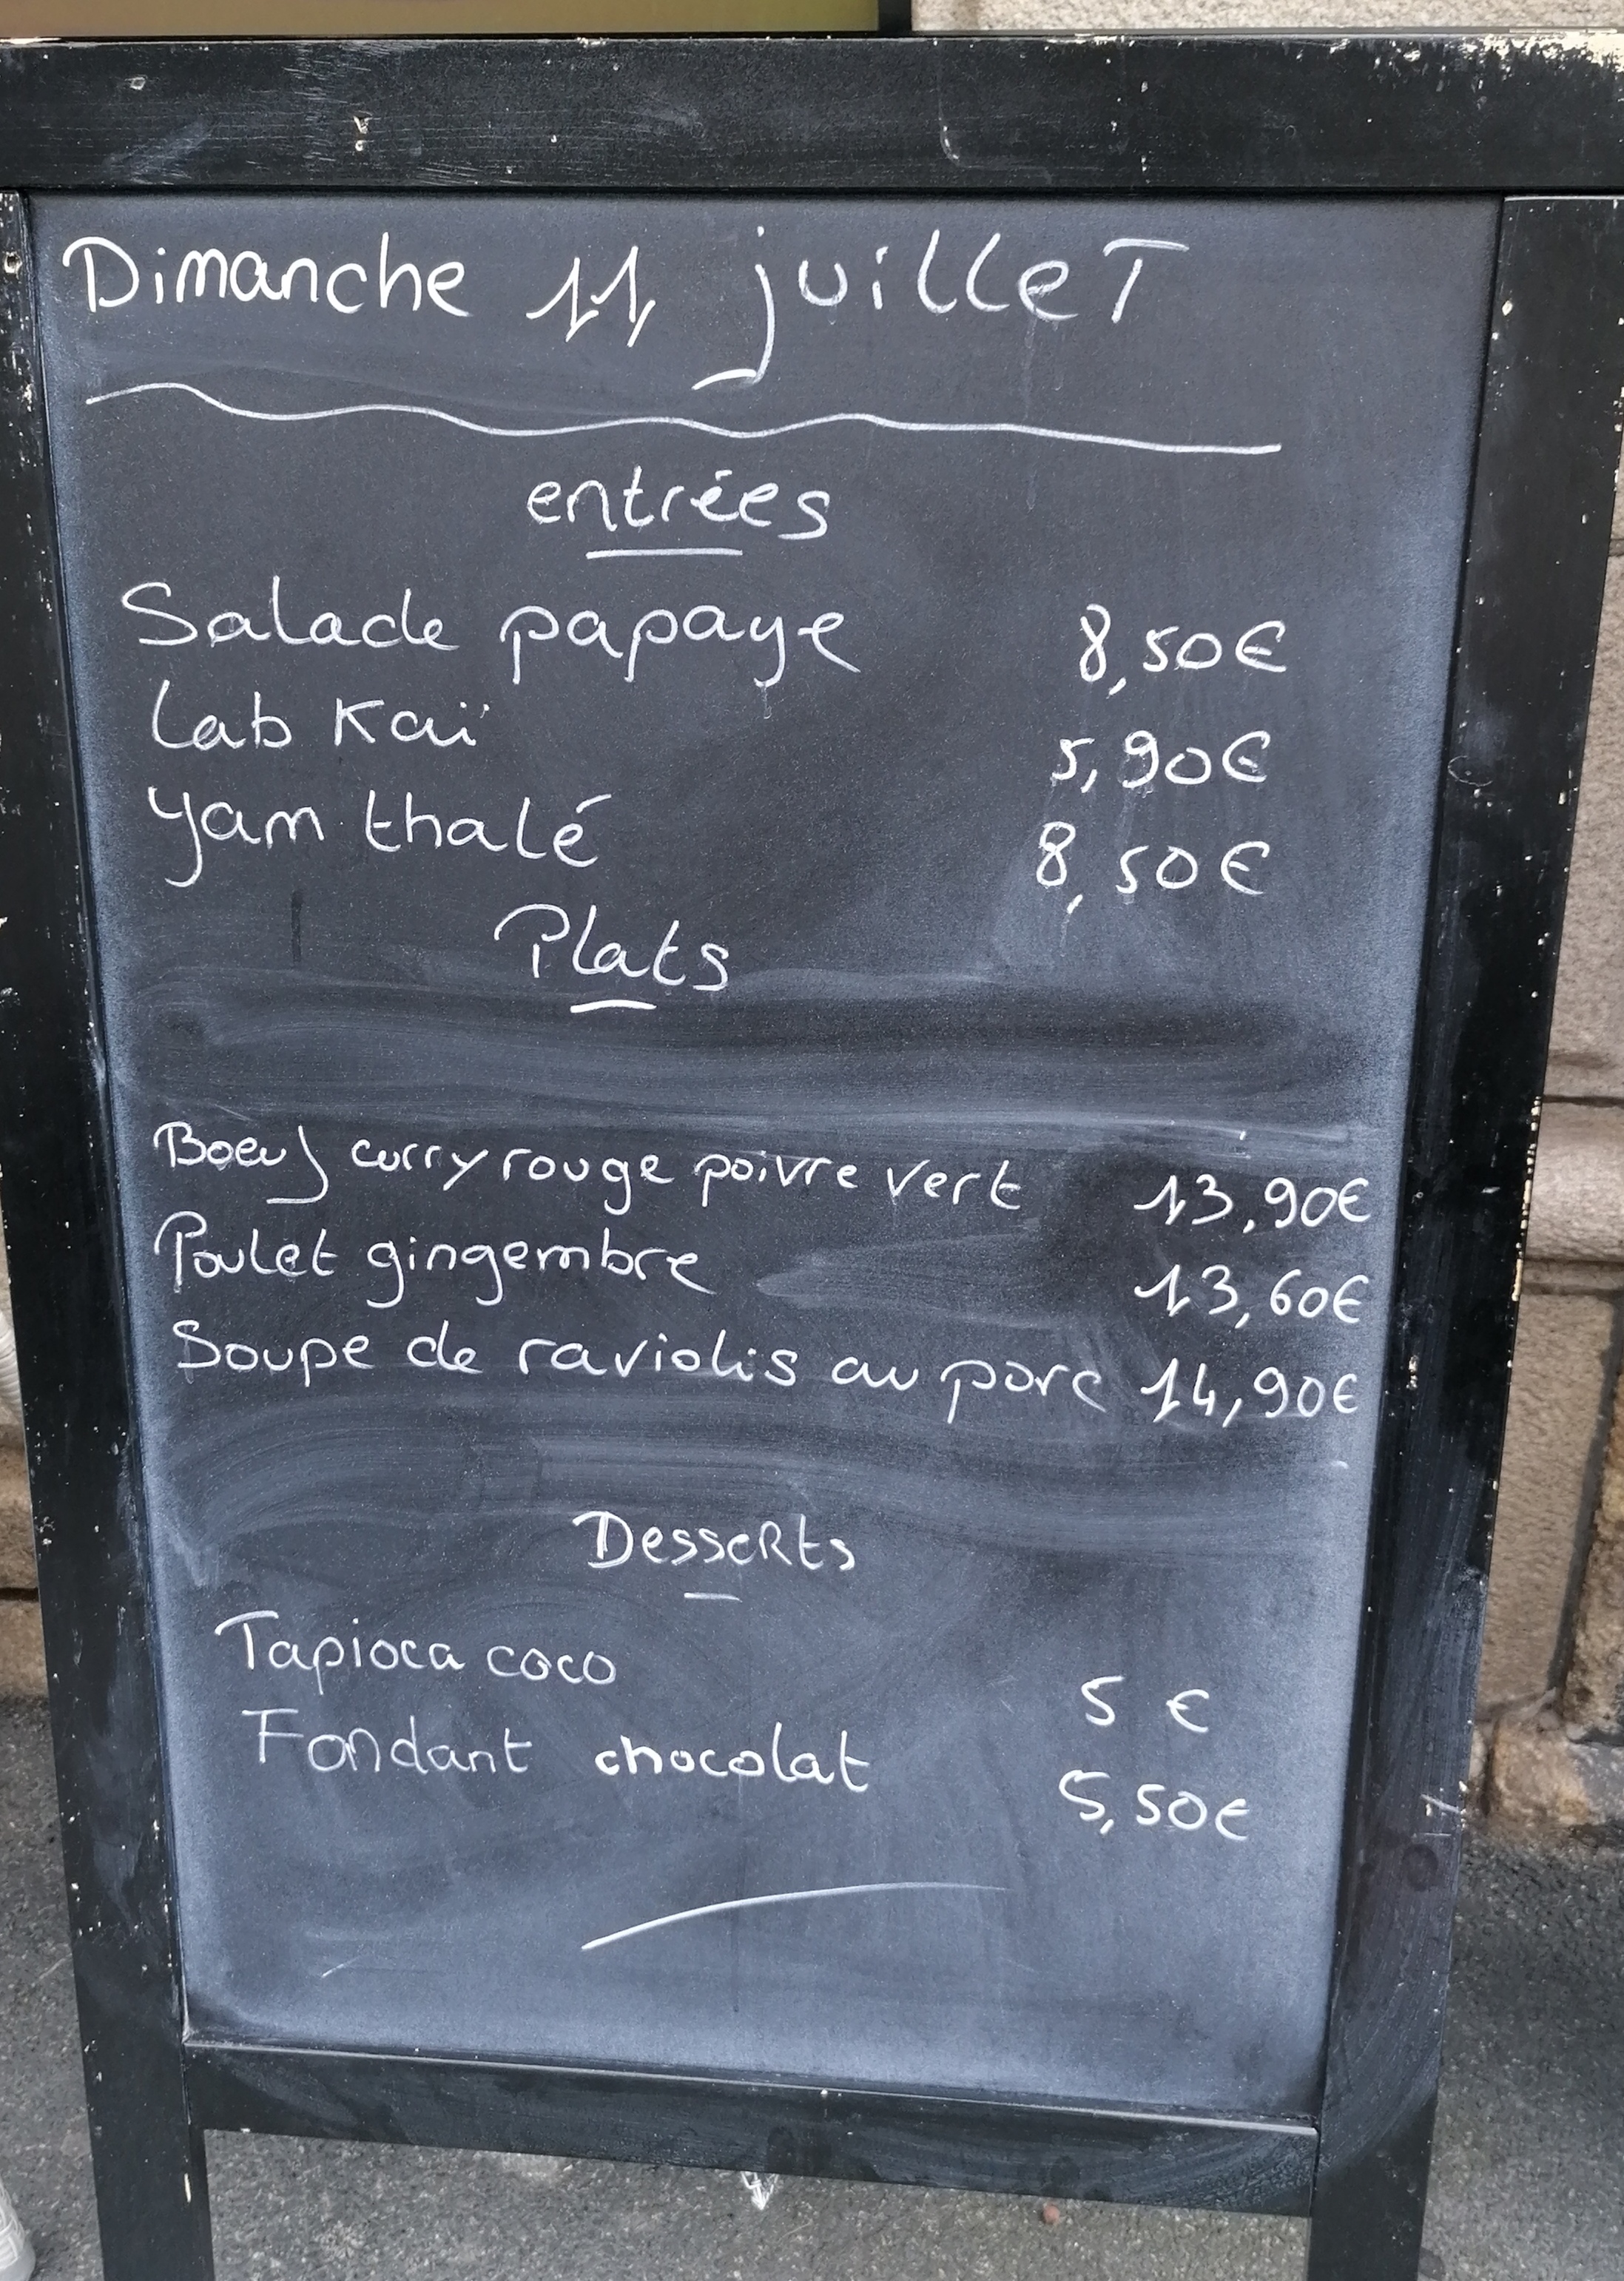 Dimanche 11 juillet
entrées
Salade papaye 8,50€
Lab Kaï 5,90€
Yam thalé 8,50€
Plats
Boeuf curry rouge poivre vert 13,90€
Poulet gingembre 13,60€
Soupe de raviolis au porc 14,90€
Desserts
Tapioca coco 5 €
Fondant chocolat 5,50€